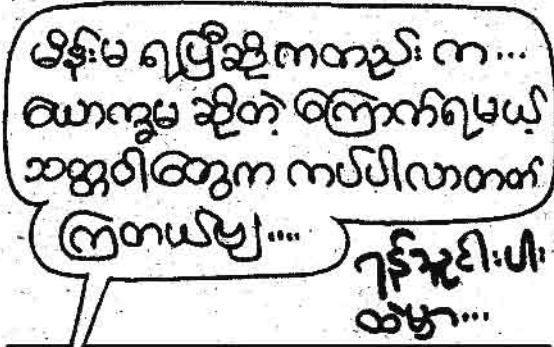 မိန်းမ ရပြီဆိုကတည်း က...
ယောက္ခမ ဆိုတဲ့ ကြောက်ရမယ့်
သတ္တဝါတွေက ကပ်ပါလာတတ်
ကြတယ်ဗျ....
ရန်သူငါးပါး
ထဲမှာ...